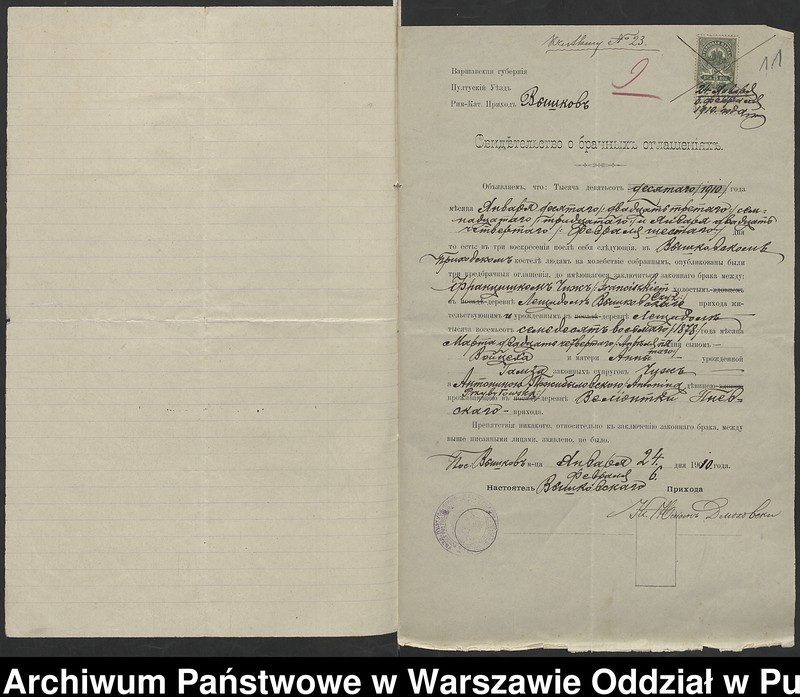 къ акту № 23.
11
Варшавская губернія
Пултускій Уѣздъ
Рим-Кат. Приходъ Вышковъ
24 Января
6 Февраля
1910 года
Свидѣтельство о брачныхъ оглашеніяхъ.
Объявляемъ, что: Тысяча девятьсотъ десятаго /1910/ года
мѣсяца Января десятаго /: двадцать третьяго /, сем-
надцатаго /: тридцатаго / и Января двадцать
четвертаго /: Февраля шестаго / дня
то есть: въ три воскресенія послѣ себя слѣдующія, въ Вышковскомъ
Приходскомъ костелѣ людямъ на молебствіе собраннымъ, опубликованы были
три предбрачныя оглашенія, до имѣющагося заключиться законнаго брака между:
Францишкомъ Чижъ /Franciszkiem холостымъ-вдовцемъ
Czyż/
въ посадѣ-деревнѣ Лещидолъ Вышковскаго прихода жи-
тельствующимъ и урожденнымъ въ посадѣ-деревнѣ Лещидолъ
тысяча восемьсотъ семедесятъ восьмаго /1878/ года мѣсяца
Марта двадцать четвертаго /Апрѣля пя дня сыномъ —
таго/
Войцеха и матери Анны урожденной
Гамза законныхъ супруговъ Чижъ —
а Антониною Пржибыловскою /Antonina дѣвицею-вдовою
Przybyłowska/
прожив въ посадѣ-деревнѣ Пнев-
скаго — прихода.
Препятствія никакого, относительно къ заключенію законнаго брака, между
выше писанными лицами, заявлено, не было.
Пос. Вышковъ м-ца Января 24 дня 1910. года.
Февраля 6.
Настоятель Вышковскаго Прихода
Archiwum Państwowe w Warszawie Oddział w Pu